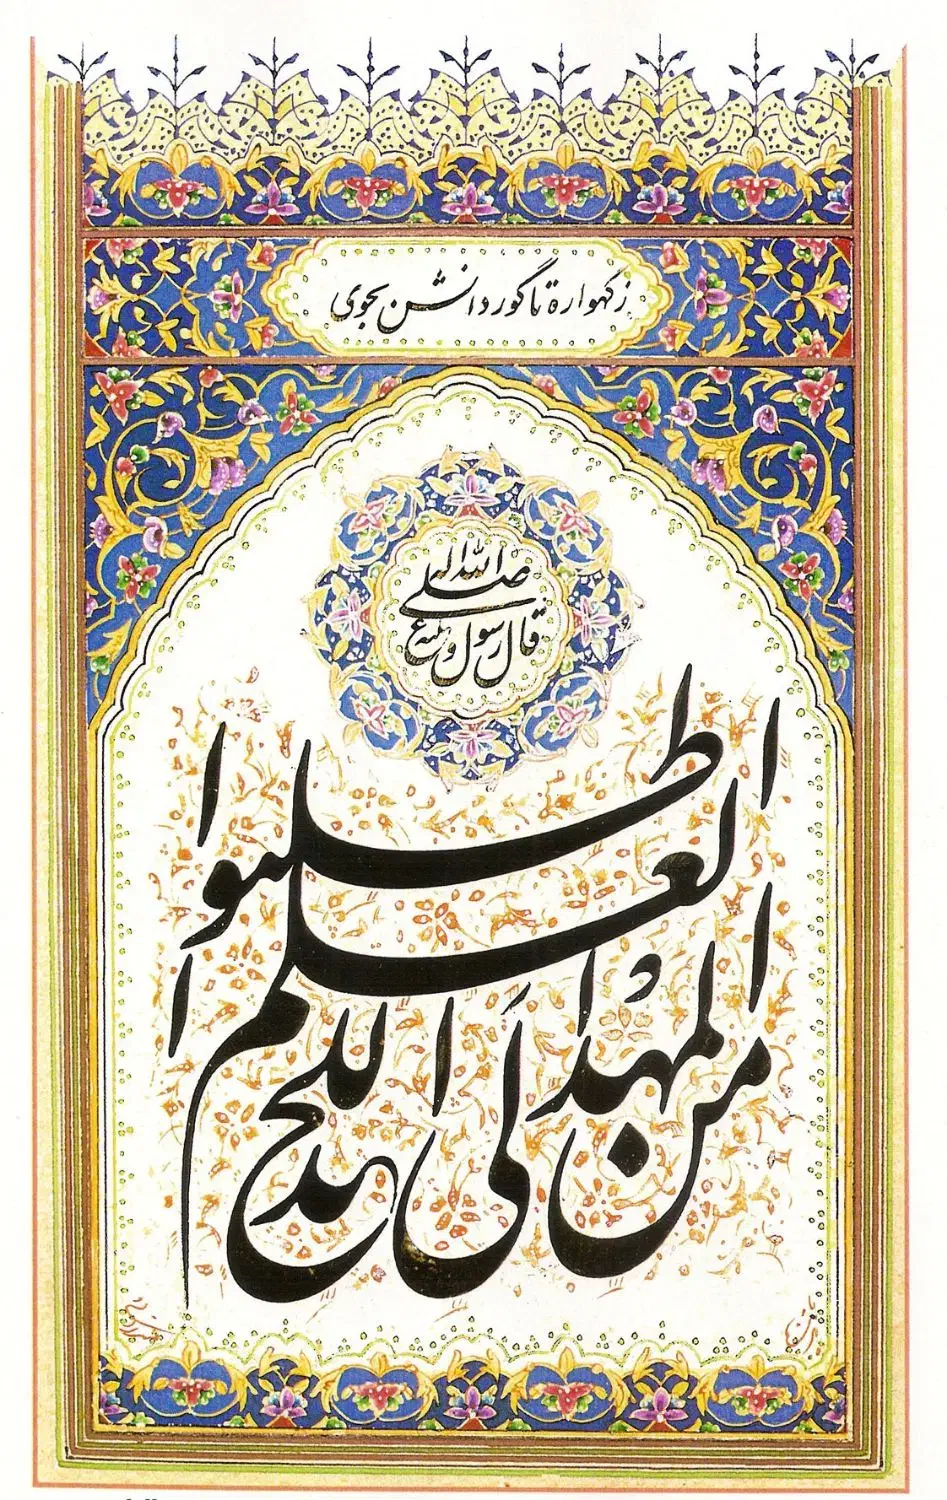 زگهوارهٔ تا گور دانش بجوی
قال رسول الله صلی الله علیه و اله
اطلبوا
العلم
من المهد الی اللحد